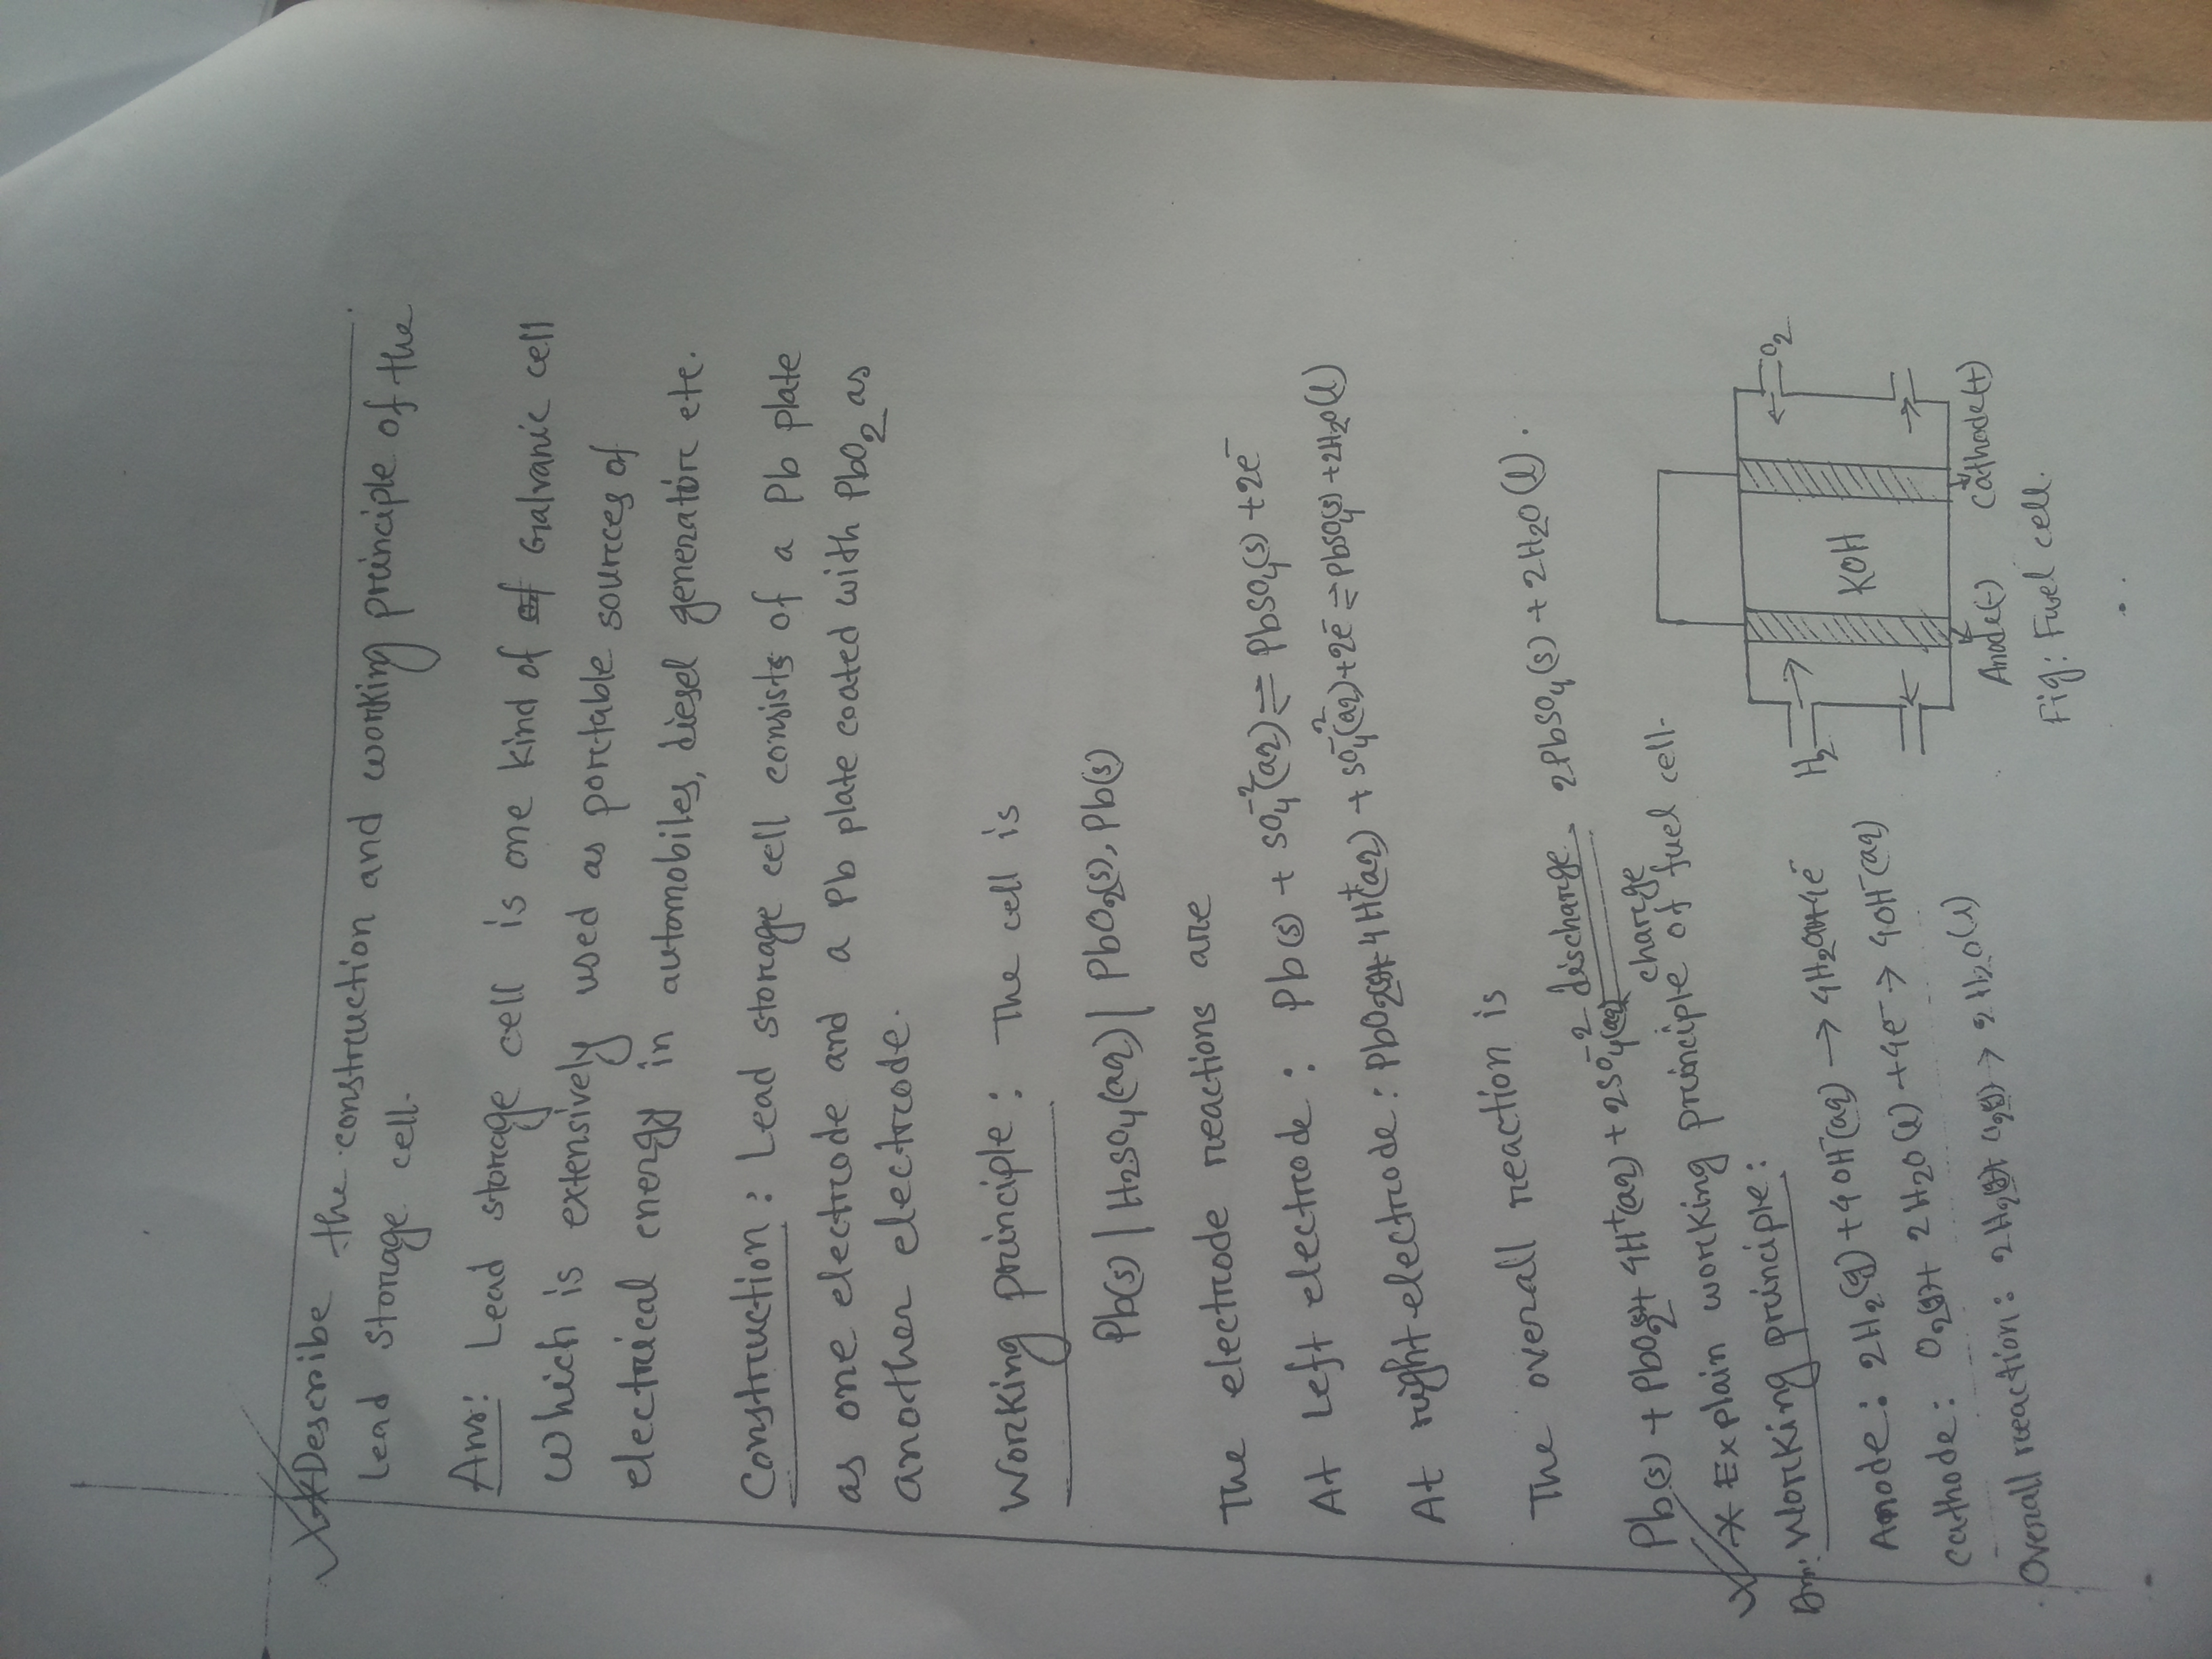 * Describe the construction and working principle of the
Lead storage cell.
Ans: Lead storage cell is one kind of Galvanic cell
which is extensively used as portable sources of
electrical energy in automobiles, diesel generator etc.
Construction: Lead storage cell consists of a Pb plate
as one electrode and a Pb plate coated with PbO2 as
another electrode.
Working principle: The cell is
Pb(s) | H2SO4(aq) | PbO2(s), Pb(s)
The electrode reactions are
At Left electrode: Pb(s) + SO4^-2(aq) ⇌ PbSO4(s) + 2e^-
At right electrode: PbO2(s) + 4H^+(aq) + SO4^-2(aq) + 2e^- ⇌ PbSO4(s) + 2H2O(l)
The overall reaction is
Pb(s) + PbO2(s) + 4H^+(aq) + 2SO4^-2(aq) discharge 2PbSO4(s) + 2H2O(l).
charge
* Explain working principle of fuel cell.
Ans: Working principle:
Anode: 2H2(g) + 4OH^-(aq) → 4H2O + 4e^-
Cathode: O2(g) + 2H2O(l) + 4e^- → 4OH^-(aq)
Overall reaction: 2H2(g) + O2(g) → 2H2O(l)
H2
O2
KOH
Anode(-)
Cathode(+)
Fig: Fuel cell.